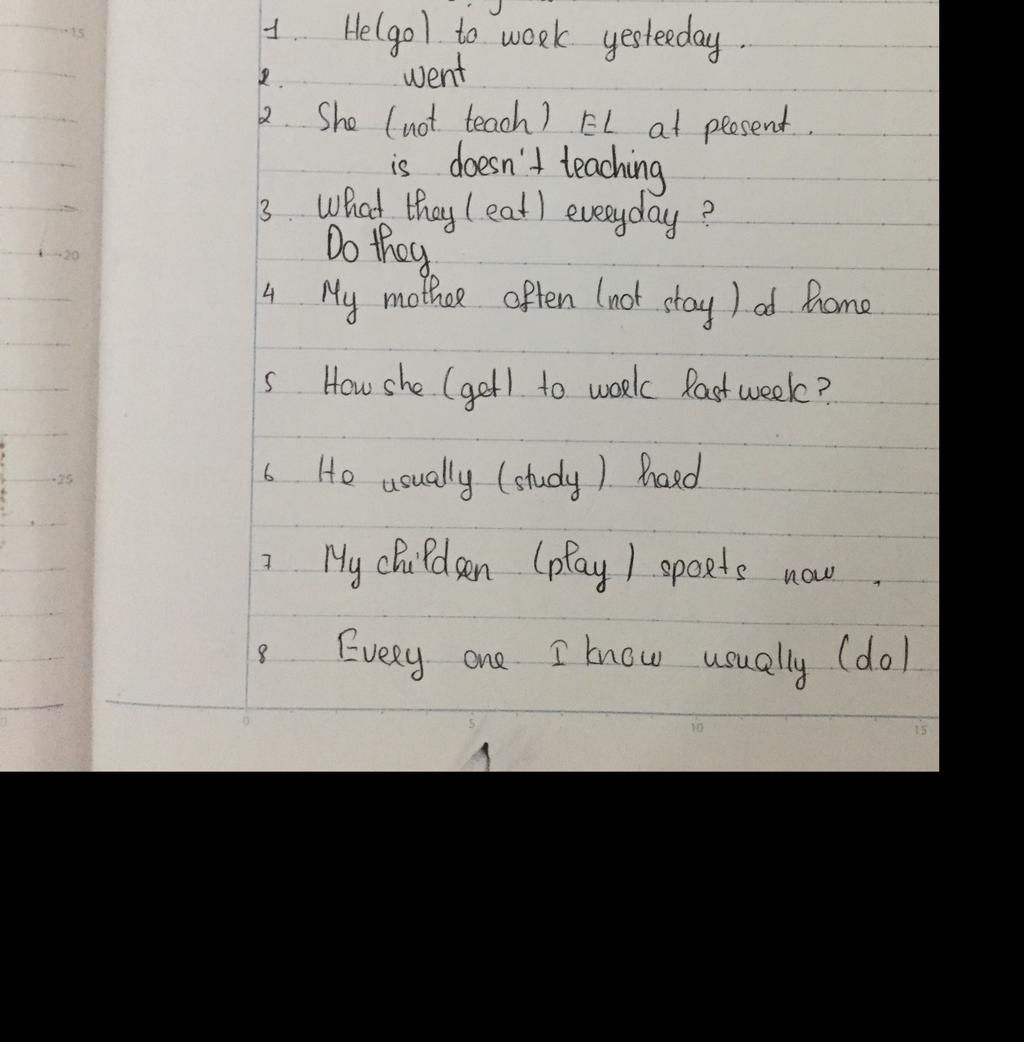 1. He (go) to work yesterday.
2. went
2. She (not teach) EL at present.
is doesn't teaching
3. What they (eat) everyday?
Do they
4 My mother often (not stay) at home
5 How she (get) to work last week?
6 He usually (study) hard
7 My children (play) sports now.
8 Every one I know usually (do)
15
20
25
0
0
5
10
15